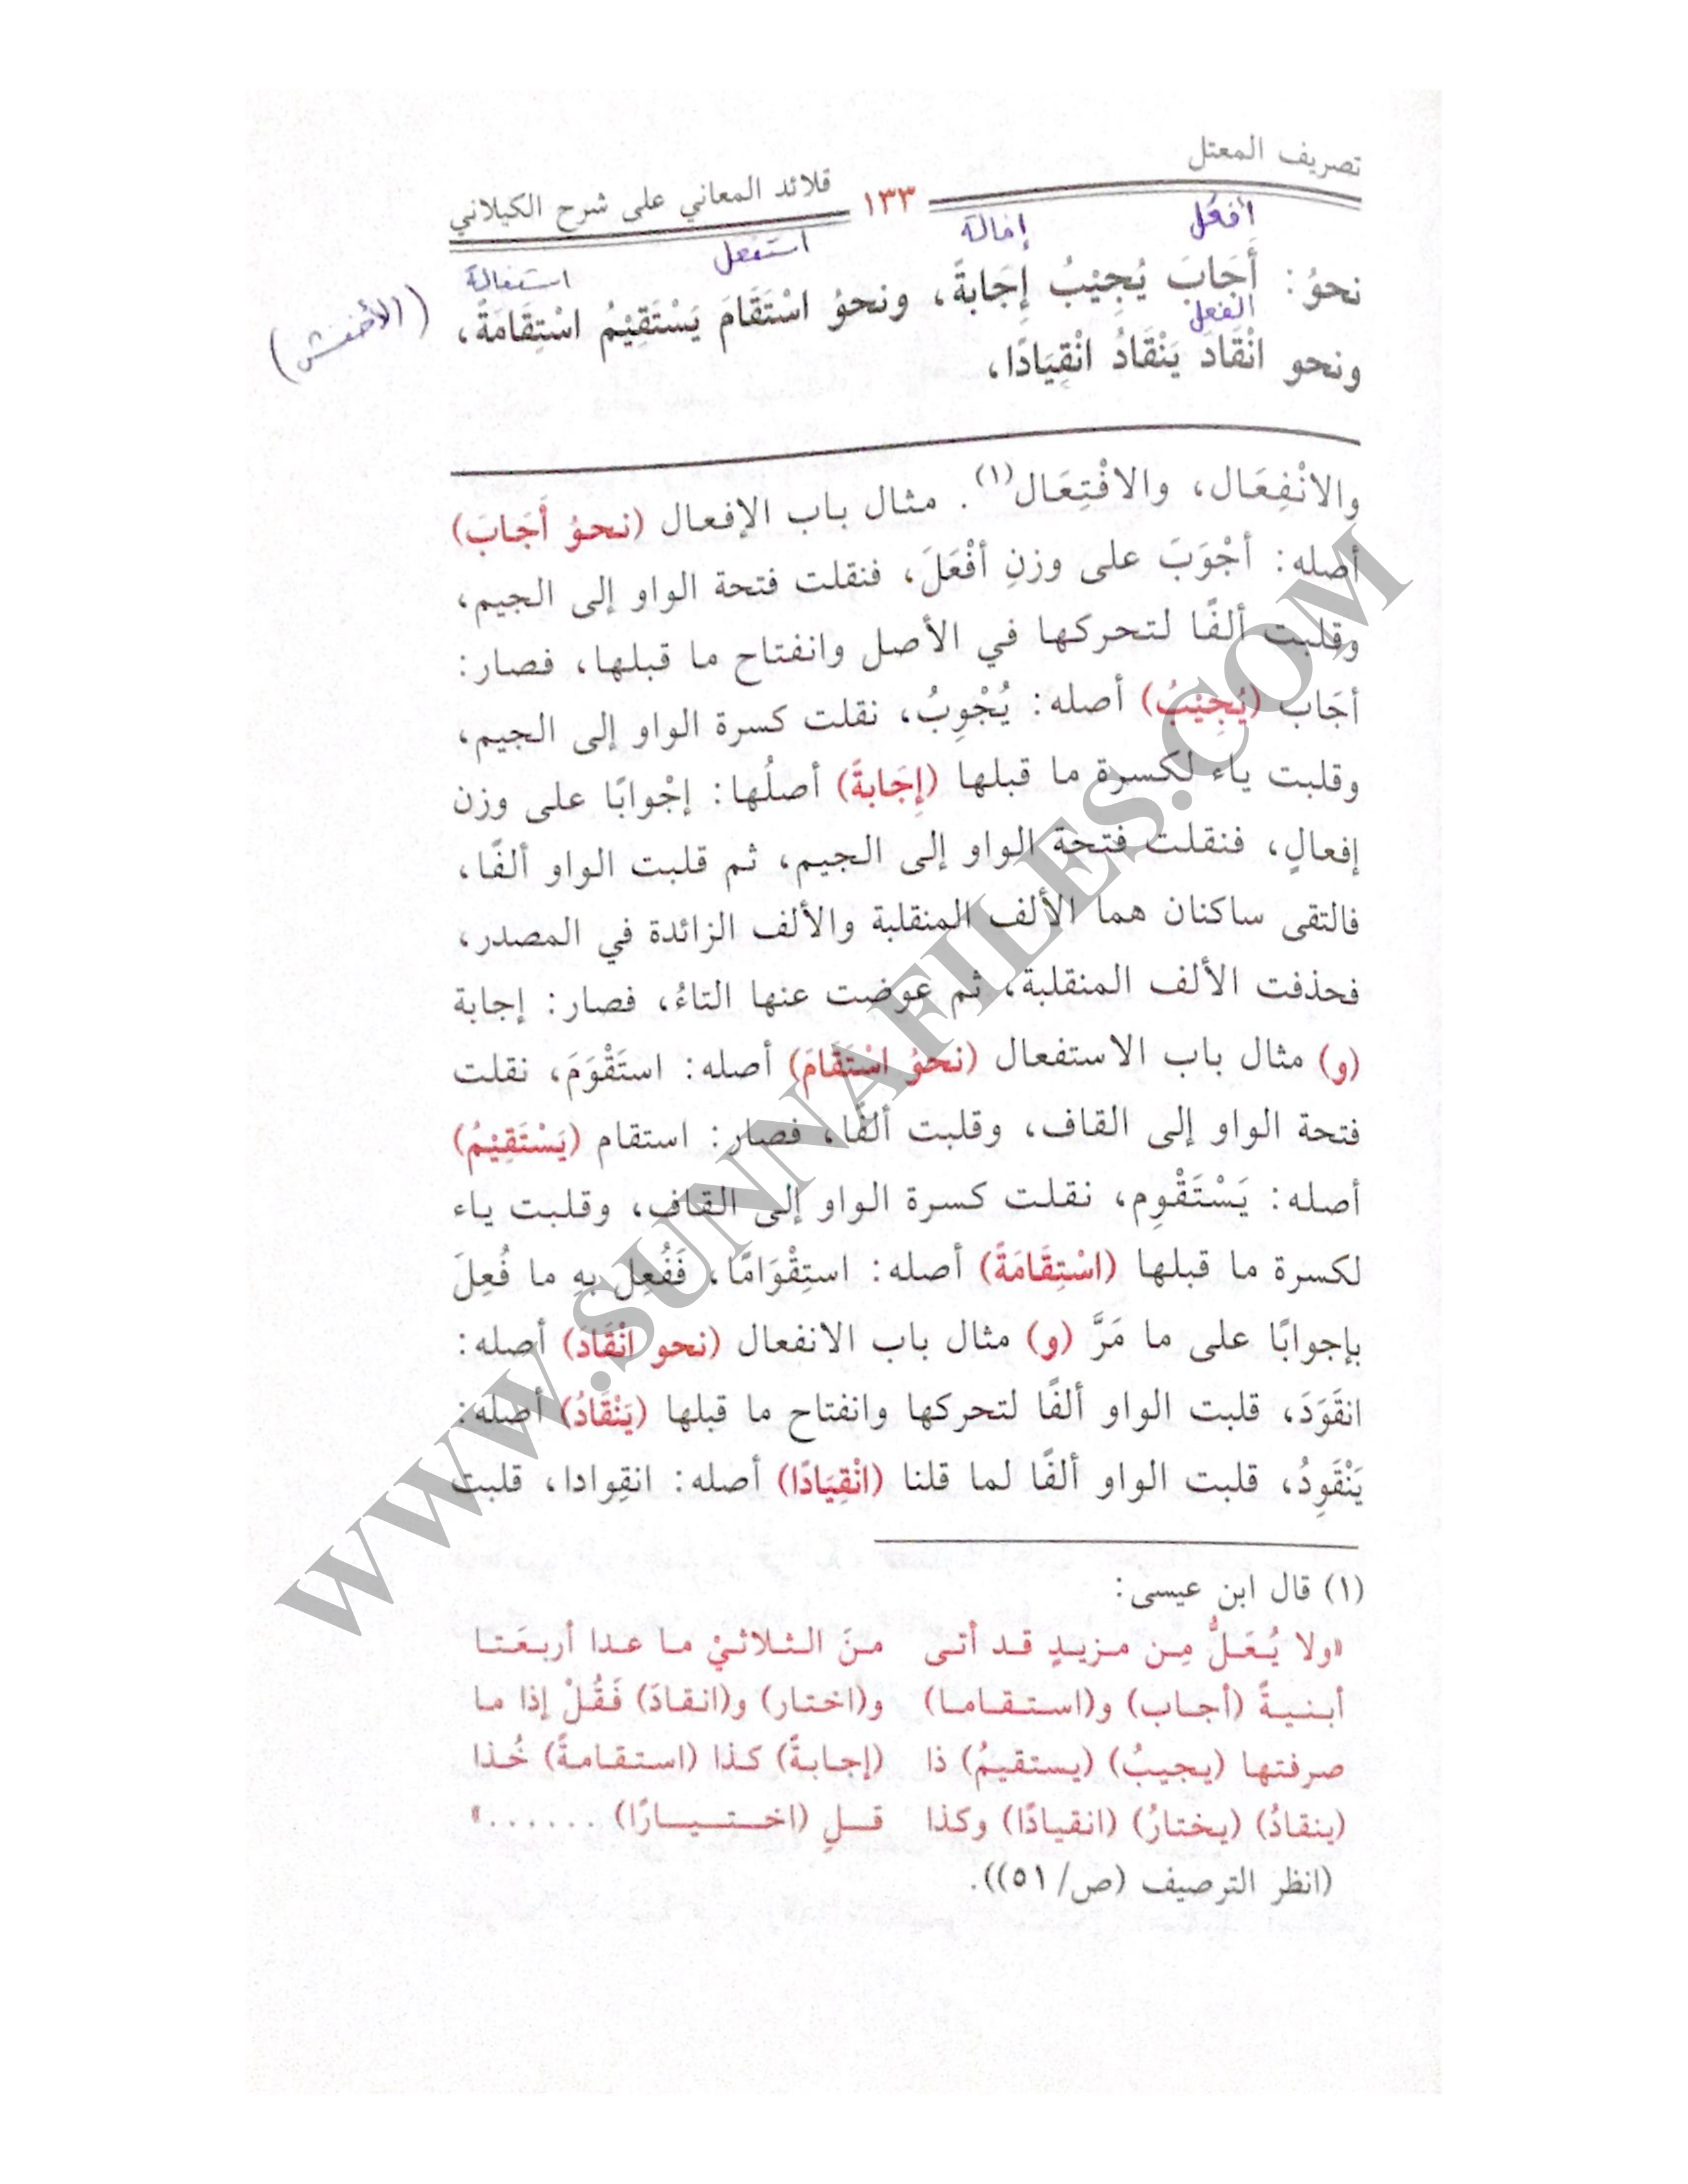 تصريف المعتل
١٣٣
قلائد المعاني على شرح الكيلاني
أفعل
إفالة
استفعل
استفالة
نحوُ: أَجَابَ يُجِيْبُ إِجَابةً، ونحوُ اسْتَقَامَ يَسْتَقِيْمُ اسْتِقَامَةً،
(الأخفش)
انفعل
ونحو انْقَادَ يَنْقَادُ انْقِيَادًا،
والانْفِعَال، والافْتِعَال(١). مثال باب الإفعال (نحوُ أَجَابَ)
أصله: أجْوَبَ على وزنِ أفْعَلَ، فنقلت فتحة الواو إلى الجيم،
وقلبت ألفًا لتحركها في الأصل وانفتاح ما قبلها، فصار:
أجَاب (يُجِيْبُ) أصله: يُجْوِبُ، نقلت كسرة الواو إلى الجيم،
وقلبت ياء لكسرة ما قبلها (إِجَابةً) أصلُها: إجْوابًا على وزن
إفعالٍ، فنقلت فتحة الواو إلى الجيم، ثم قلبت الواو ألفًا،
فالتقى ساكنان هما الألف المنقلبة والألف الزائدة في المصدر،
فحذفت الألف المنقلبة، ثم عوضت عنها التاءُ، فصار: إجابة
(و) مثال باب الاستفعال (نحوُ اسْتَقَامَ) أصله: استَقْوَمَ، نقلت
فتحة الواو إلى القاف، وقلبت ألفًا، فصار: استقام (يَسْتَقِيْمُ)
أصله: يَسْتَقْوِم، نقلت كسرة الواو إلى القاف، وقلبت ياء
لكسرة ما قبلها (اسْتِقَامَةً) أصله: استِقْوَامًا، فَفُعِل بهِ ما فُعِلَ
بإجوابًا على ما مَرَّ (و) مثال باب الانفعال (نحو انْقَادَ) أصله:
انقَوَدَ، قلبت الواو ألفًا لتحركها وانفتاح ما قبلها (يَنْقَادُ) أصله:
يَنْقَوِدُ، قلبت الواو ألفًا لما قلنا (انْقِيَادًا) أصله: انقِوادا، قلبت
(١) قال ابن عيسى:
«ولا يُعَلُّ مِن مزيدٍ قد أتى من‍َ الثلاثيْ ما عدا أربعَتا
أبنيةً (أجاب) و(استقاما) و(اختار) و(انقادَ) فَقُلْ إذا ما
صرفتها (يجيبُ) (يستقيمُ) ذا (إجابةً) كذا (استقامةً) خُذا
(ينقادُ) (يختارُ) (انقيادًا) وكذا قلِ (اختيارًا) ......»
(انظر الترصيف (ص/ ٥١)).
WWW.SUNNAFILES.COM